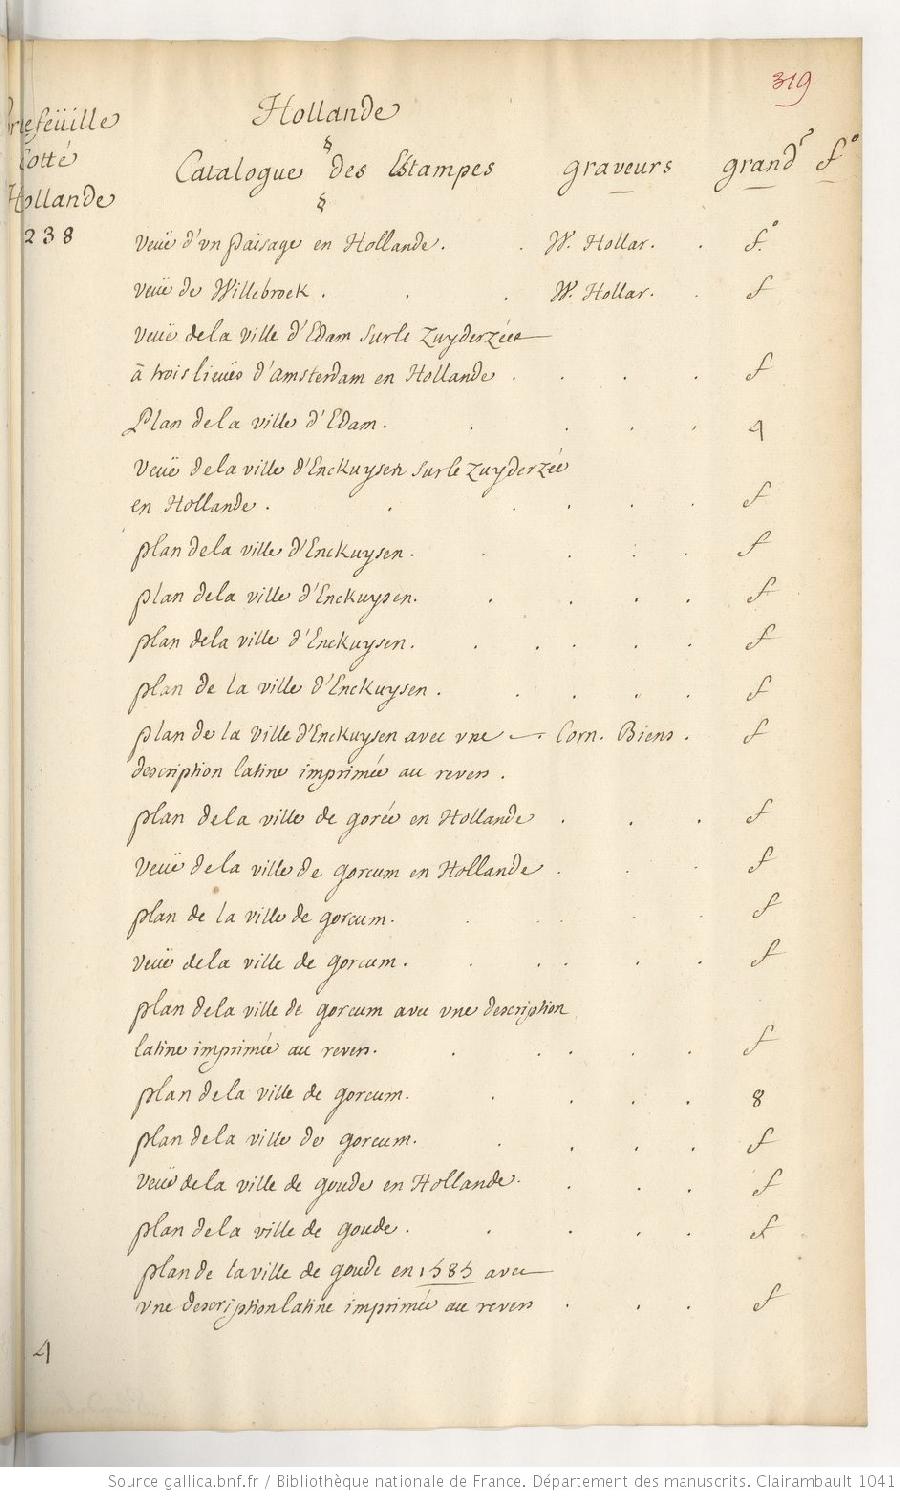 319
Hollande
rtefeüille
Cotté
Hollande
238
§
Catalogue des Estampes graveurs grandr fo
§
veüe d'vn païsage en Hollande . . W. Hollar . . fo.
veüe de Willebroek . . . W. Hollar . . f
veüe de la ville d'Edam sur le Zuyderzée
à trois lieües d'amsterdam en Hollande . . . . f
Plan de la ville d'Edam . . . . . 4
Veüe de la ville d'Enckuysen sur le Zuyderzée
en Hollande . . . . . . f
plan de la ville d'Enckuysen . . . . . f
plan de la ville d'Enckuysen . . . . . f
plan de la ville d'Enckuysen . . . . . . f
plan de la ville d'Enckuysen . . . . . f
plan de la ville d'Enckuysen avec vne — Corn. Biens . f
description latine imprimée au revers .
plan de la ville de gorée en Hollande . . . f
Veüe de la ville de gorcum en Hollande . . . f
plan de la ville de gorcum . . . . . f
veüe de la ville de gorcum . . . . . . f
plan de la ville de gorcum avec vne description
latine imprimée au revers . . . . . . f
plan de la ville de gorcum . . . . . 8
plan de la ville de gorcum . . . . . f
veüe de la ville de goude en Hollande . . . . f
plan de la ville de goude . . . . . f
plan de la ville de goude en 1585 avec
vne description latine imprimée au revers . . . f
4
Source gallica.bnf.fr / Bibliothèque nationale de France. Département des manuscrits. Clairambault 1041